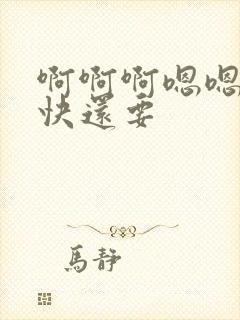 啊啊啊嗯嗯
快还要
馬靜